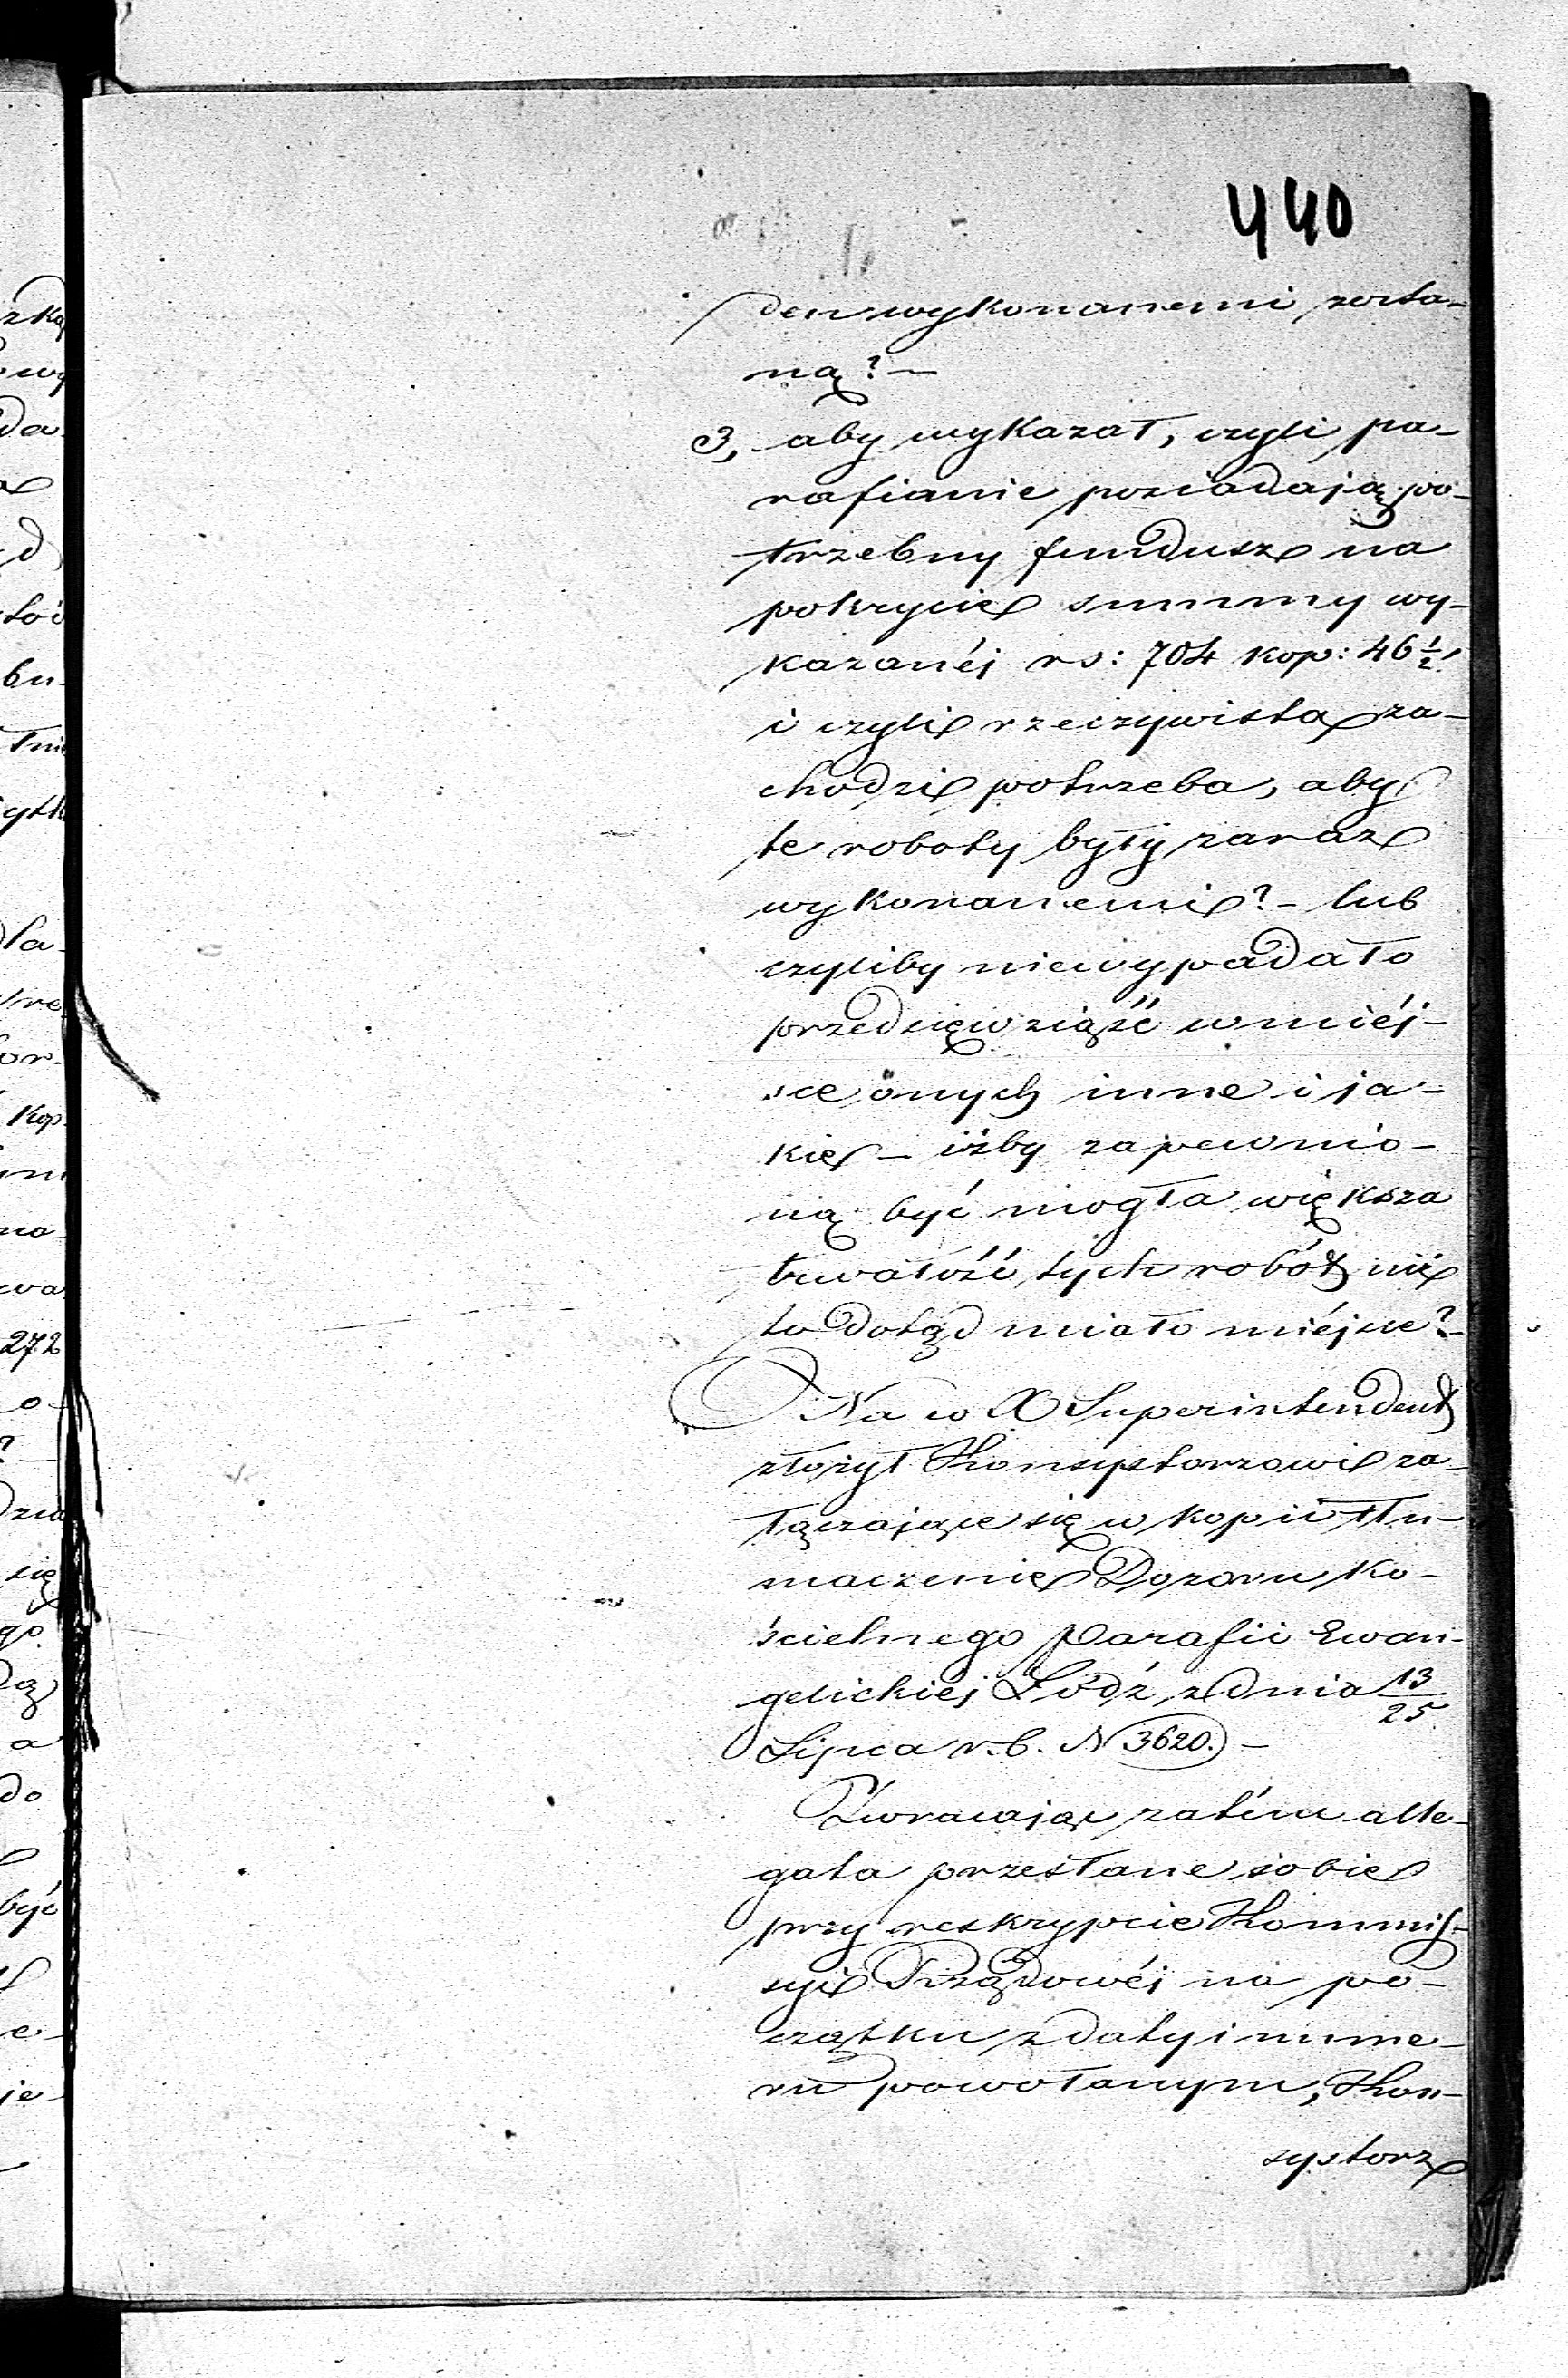 440
den wykonanemi zosta-
ną? —
3, aby wykazał, czyli pa-
rafianie posiadają po-
trzebny fundusz na
pokrycie summy wy-
kazanéj rs: 704 kop: 46 ½
i czyli rzeczywista za-
chodzi potrzeba, aby
te roboty były zaraz
wykonanemi? - lub
czyliby niewypadało
przedsięwziąść w miéj-
sce onych inne i ja-
kie — iżby zapewnio-
ną być mogła większa
trwałość tych robót niż
to dotąd miało miéjsce? -
Na co X Superintendent
złożył Konsystorzowi za-
łączające się w kopii tłu-
maczenie Dozoru Ko-
ścielnego Parafii Ewan-
gelickiéj Łódź z dnia 13/25
Lipca r. b. N 3620. —
Zwracając zatém alle-
gata przesłane sobie
przy reskrypcie Kommis-
syi Rządowéj na po-
czątku z daty i nume-
ru powołanym, Kon-
systorz